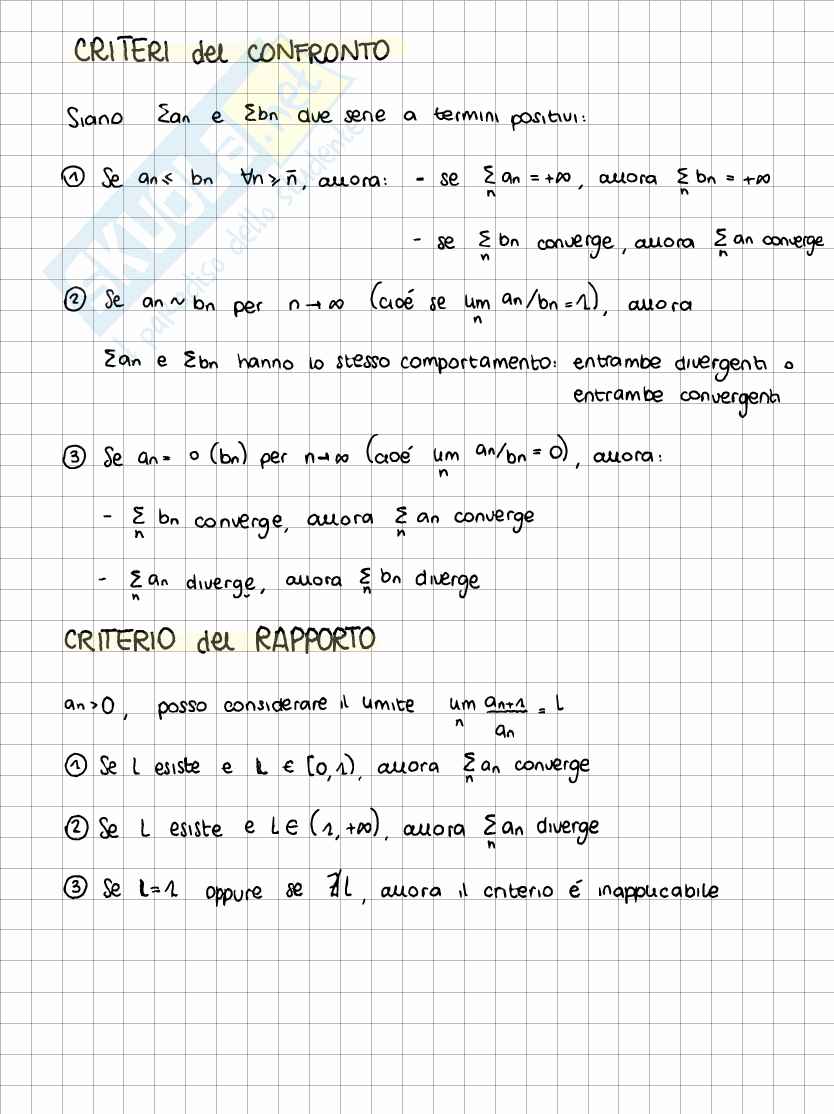 CRITERI del CONFRONTO
Siano Σan e Σbn due serie a termini positivi:
① Se an ≤ bn ∀n ≥ n̄, allora: - se Σn an = +∞, allora Σn bn = +∞
- se Σn bn converge, allora Σn an converge
② Se an ~ bn per n → ∞ (cioé se limn an/bn = 1), allora
Σan e Σbn hanno lo stesso comportamento: entrambe divergenti o
entrambe convergenti
③ Se an = o (bn) per n → ∞ (cioé limn an/bn = 0), allora:
- Σn bn converge, allora Σn an converge
- Σn an diverge, allora Σn bn diverge
CRITERIO del RAPPORTO
an > 0, posso considerare il limite limn an+1/an = L
① Se L esiste e L ∈ [0,1), allora Σn an converge
② Se L esiste e L ∈ (1,+∞), allora Σn an diverge
③ Se L = 1 oppure se ∄L, allora il criterio é inapplicabile
SKUOLA.net
il paradiso dello studente